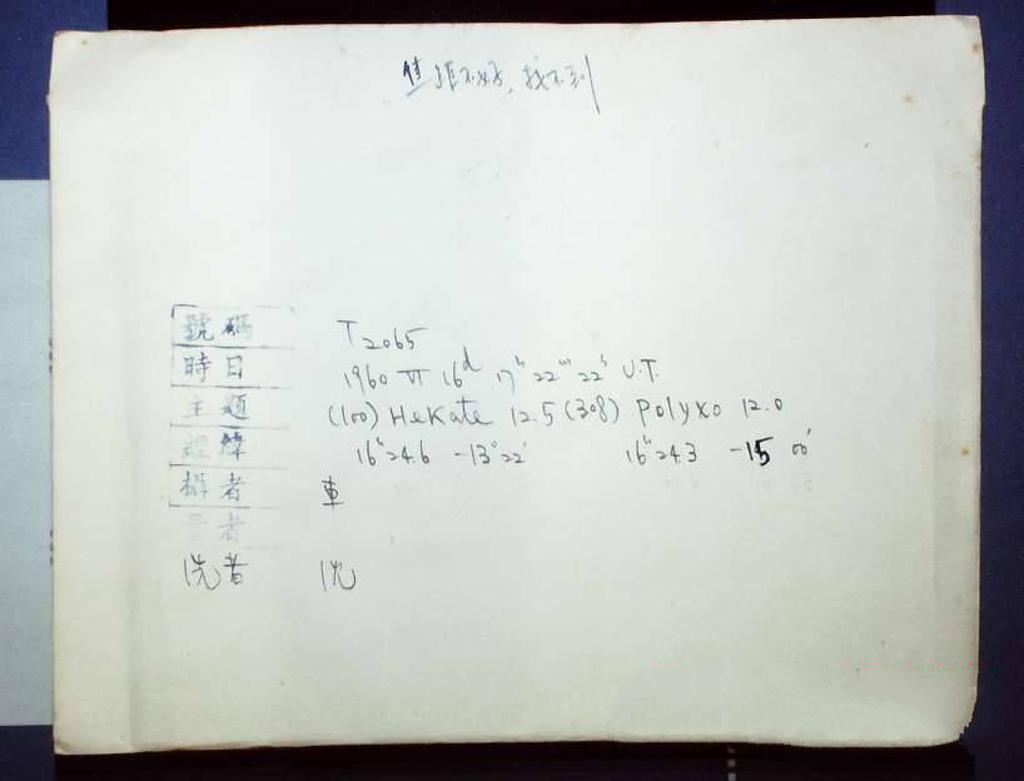 不好，找不到
號碼 T2065
時日 1960 VI 16d 17h 22m 22s U.T.
主題 (100) HeKate 12.5 (308) Polyxo 12.0
經緯 16h24.6 -13°22' 16h24.3 -15 00'
攝者 車
者
洗者 沈